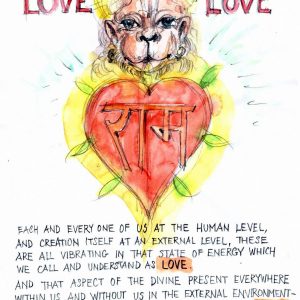 LOVE LOVE
राम
EACH AND EVERY ONE OF US AT THE HUMAN LEVEL,
AND CREATION ITSELF AT AN EXTERNAL LEVEL, THESE
ARE ALL VIBRATING IN THAT STATE OF ENERGY WHICH
WE CALL AND UNDERSTAND AS LOVE
AND THAT ASPECT OF THE DIVINE PRESENT EVERYWHERE
WITHIN US AND WITHOUT US IN THE EXTERNAL ENVIRONMENT-